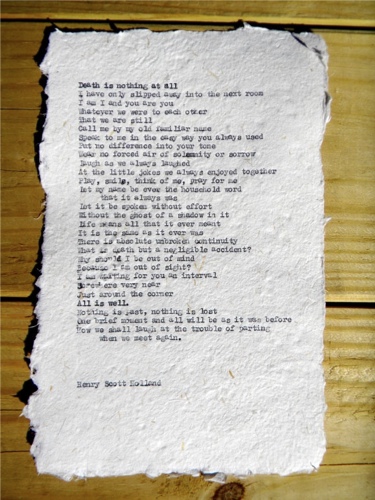 Death is nothing at all
I have only slipped away into the next room
I am I and you are you
Whatever we were to each other
That we are still
Call me by my old familiar name
Speak to me in the easy way you always used
Put no difference into your tone
Wear no forced air of solemnity or sorrow
Laugh as we always laughed
At the little jokes we always enjoyed together
Play, smile, think of me, pray for me
Let my name be ever the household word
that it always was
Let it be spoken without effort
Without the ghost of a shadow in it
Life means all that it ever meant
It is the same as it ever was
There is absolute unbroken continuity
What is death but a negligible accident?
Why should I be out of mind
Because I am out of sight?
I am waiting for you an interval
Somewhere very near
Just around the corner
All is well.
Nothing is past, nothing is lost
One brief moment and all will be as it was before
How we shall laugh at the trouble of parting
when we meet again.
Henry Scott Holland